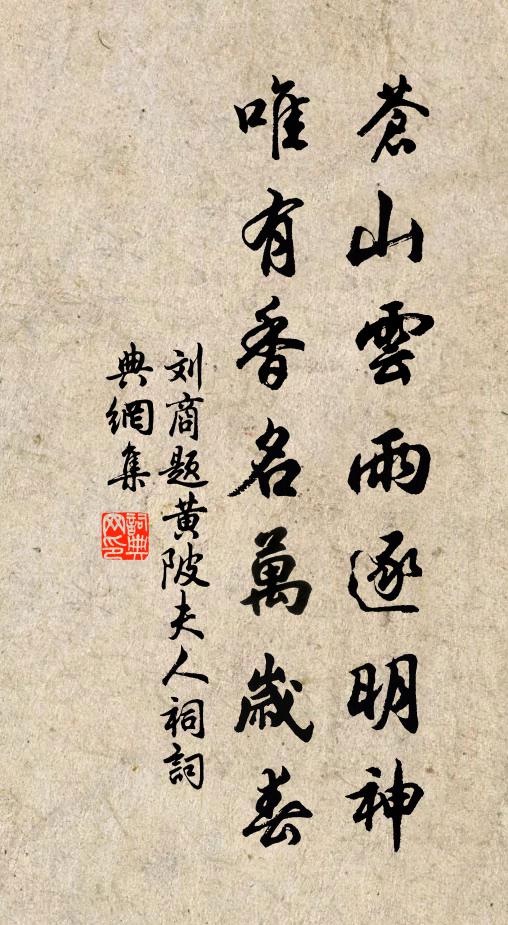 蒼山雲雨逐明神
唯有香名萬歲春
刘商题黄陂夫人祠詞
典網集
詞典
网印